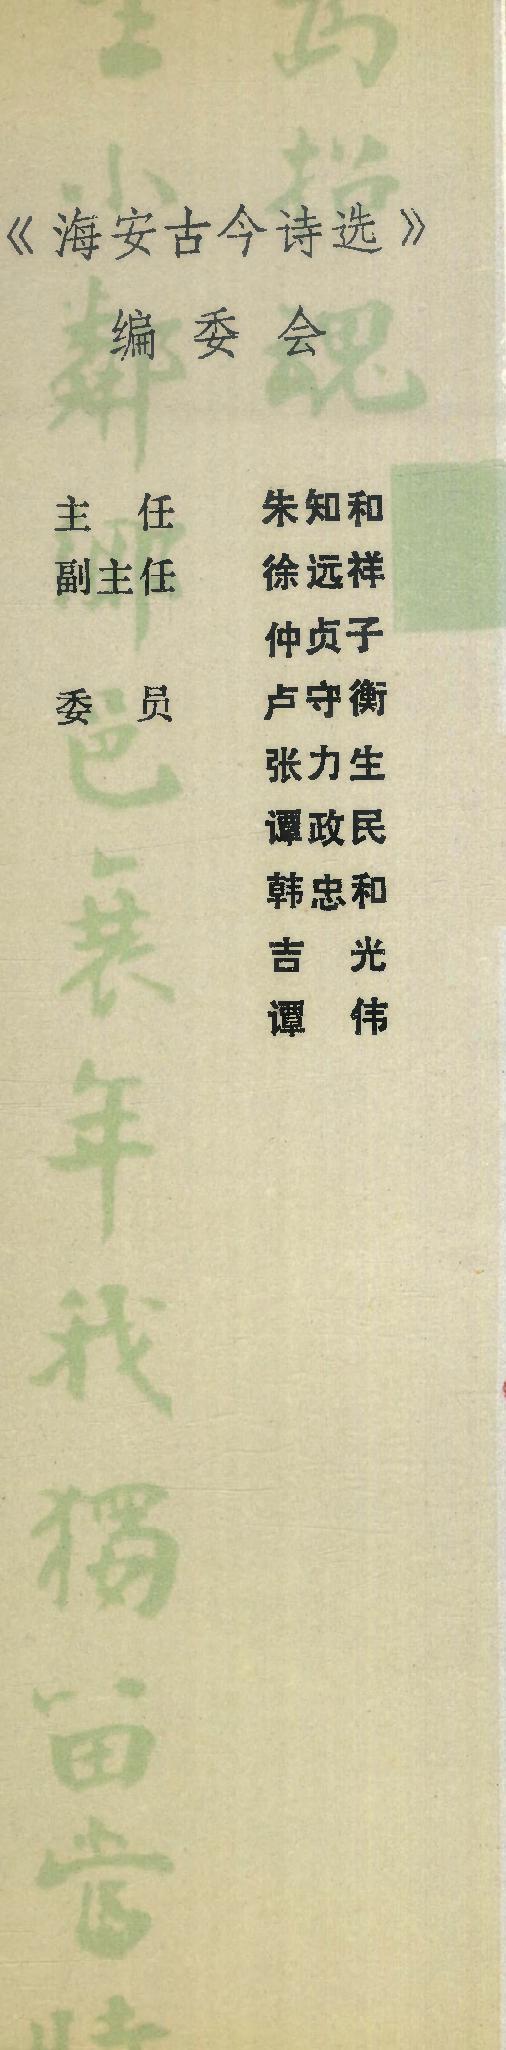 《海安古今诗选》
编委会
主 任 朱知和
副主任 徐远祥
仲贞子
委 员 卢守衡
张力生
谭政民
韩忠和
吉 光
谭 伟